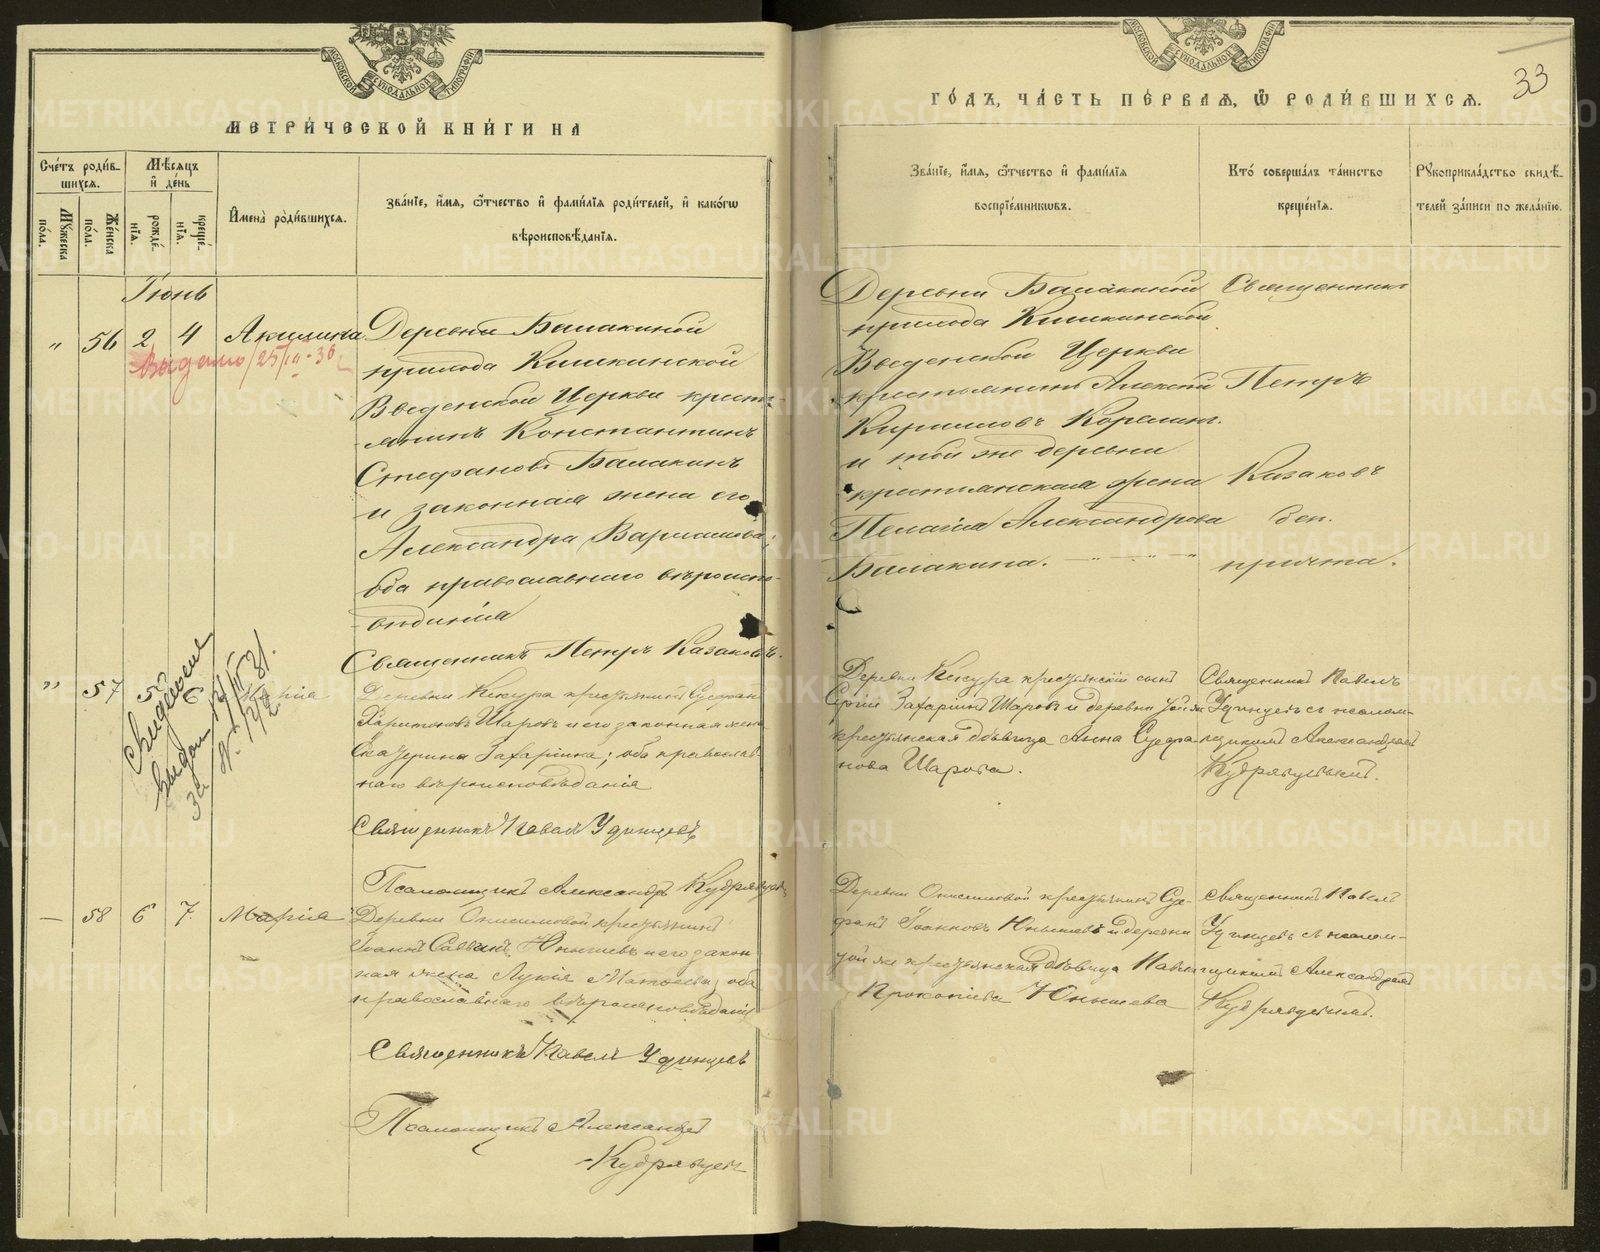 МОСКОВСКОЙ СѴНОДАЛЬНОЙ ТИПОГРАФІИ
МЕТРИ́ЧЕСКОЙ КНИ́ГИ НА
Сче́тъ роди́в-
шихсѧ.
Мѣ́сѧцъ
и҆ де́нь
И҆мена̀ роди́вшихсѧ.
Зва́нїе, и҆́мѧ, ѻ҆́тчество и҆ фами́лїѧ роди́телей, и҆ како́гѡ
вѣроисповѣ́данїѧ.
Мꙋ́жеска
по́ла.
Же́нска
по́ла.
рожде́-
нїѧ.
креще́-
нїѧ.
Іюнь
" 56 2 4 Акилина
Выдано 25/III-36
Деревни Балакиной
прихода Кишкинской
Введенской Церкви кресть-
янинъ Константинъ
Стефановъ Балакинъ
и законная жена его
Александра Варлаамова;
оба православнаго вѣроиспо-
вѣданія
Священникъ Петръ Казаковъ.
" 57 5 6 Марія
выдано
за №
Деревни Кекура крестьянинъ Стефанъ
Харитоновъ Шаровъ и его законная жена
Екатерина Захаріина; оба православ-
наго вѣроисповѣданія
Священникъ Павелъ Удинцевъ
Псаломщикъ Александръ Кудрявцевъ
— 58 6 7. Марія
Деревни Онисимовой крестьянинъ
Іоаннъ Саввинъ Юнышевъ и его закон-
ная жена Лукія Матѳеева; оба
православнаго вѣроисповѣданія
Священникъ Павелъ Удинцевъ
Псаломщикъ Александръ
Кудрявцевъ
33
ГО́ДЪ, ЧА́СТЬ ПЕ́РВАѦ, Ѡ҆ РОДИ́ВШИХСѦ.
Зва́нїе, и҆́мѧ, ѻ҆́тчество и҆ фами́лїѧ
воспрїе́мникѡвъ.
Кто̀ соверша́лъ та́инство
креще́нїѧ.
Рꙋкоприкла́дство свидѣ́-
телей за́писи по жела́нїю.
Деревни Балакиной
прихода Кишкинской
Введенской Церкви
крестьянинъ Алексѣй
Кирилловъ Корелинъ
и той же деревни
крестьянская жена
Пелагія Александрова
Балакина.
Священникъ
Петръ
Казаковъ
без.
причта.
Деревни Кекура крестьянскій сынъ
Сергій Захаринъ Шаровъ и деревни той же
крестьянская дѣвица Анна Стефа-
нова Шарова.
Священникъ Павелъ
Удинцевъ съ псалом-
щикомъ Александромъ
Кудрявцевымъ.
Деревни Онисимовой крестьянинъ Сте-
фанъ Іоанновъ Юнышевъ и деревни
той же крестьянская дѣвица Павла
Прокопіева Юнышева
Священникъ Павелъ
Удинцевъ съ псалом-
щикомъ Александромъ
Кудрявцевымъ.
METRIKI.GASO-URAL.RU